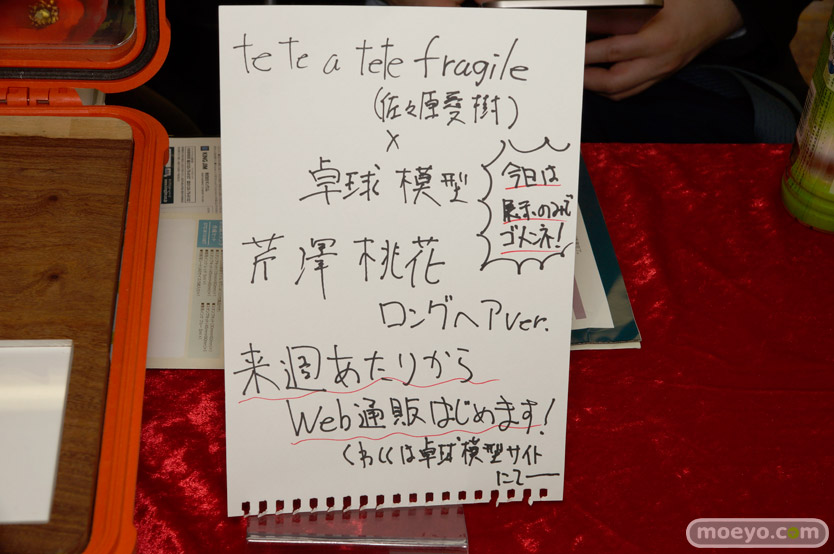 te te a tete fragile
(佐々原愛樹)
×
卓球模型
今日は
展示のみで
ゴメンネ!
芹澤 桃花
ロングヘアver.
来週あたりから
Web通販はじめます!
くわしくは卓球模型サイト
にてー
moeyo.com